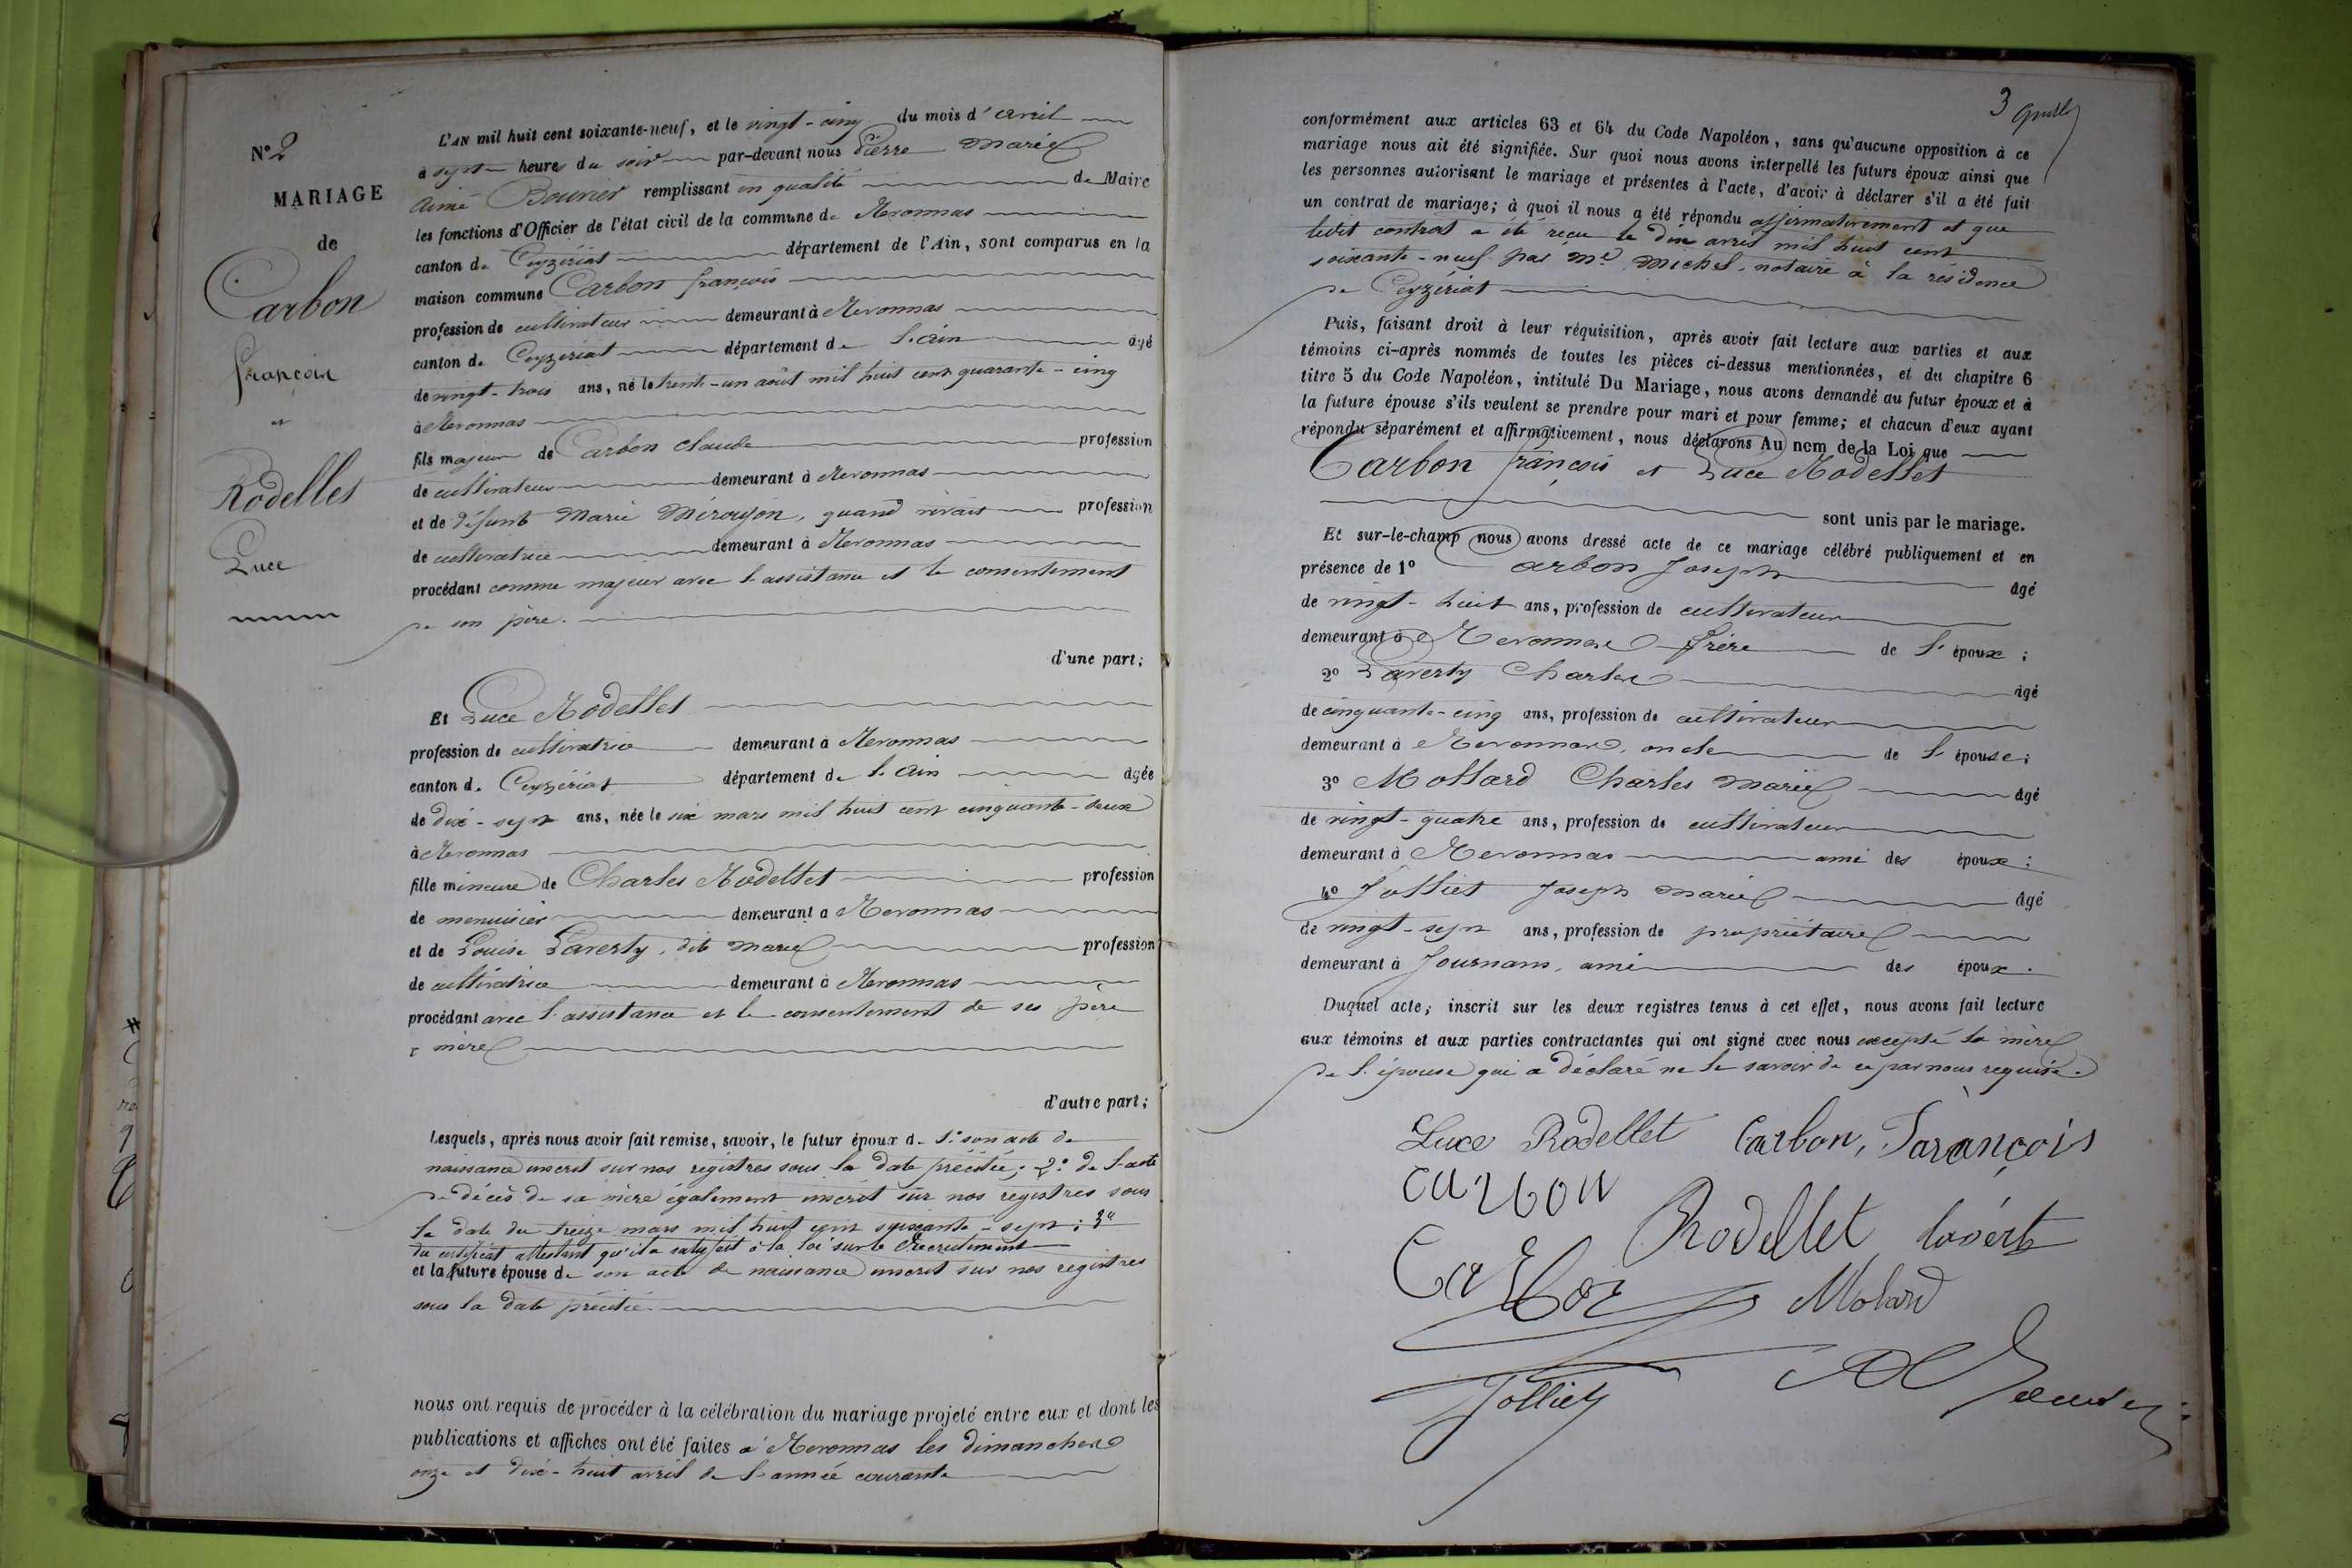 N° 2
MARIAGE
de
Carbon
françois
et
Rodellet
Luce
L'AN mil huit cent soixante-neuf, et le vingt-cinq du mois d'avril
à sept heures du soir par-devant nous Pierre Marie
Aimé Bouvier remplissant en qualité de Maire
les fonctions d'Officier de l'état civil de la commune de Revonnas
canton de Ceyzériat département de l'Ain, sont comparus en la
maison commune Carbon françois
profession de cultivateur demeurant à Revonnas
canton de Ceyzériat département de l'ain âgé
de vingt-trois ans, né le trente-un août mil huit cent quarante-cinq
à Revonnas
fils majeur de Carbon Claude profession
de cultivateur demeurant à Revonnas
et de défunte Marie quand vivait profession
de cultivatrice demeurant à Revonnas
procédant comme majeur avec l'assistance et le consentement
de son père.
d'une part;
Et Luce Rodellet
profession de cultivatrice demeurant à Revonnas
canton de Ceyzériat département de l'Ain âgée
de dix-sept ans, née le six mars mil huit cent cinquante-deux
à Revonnas
fille mineure de Charles Rodellet profession
de menuisier demeurant à Revonnas
et de Louise Laverty, dite Marie profession
de cultivatrice demeurant à Revonnas
procédant avec l'assistance et le consentement de ses père
& mère
d'autre part;
Lesquels, après nous avoir fait remise, savoir, le futur époux de 1° son acte de
naissance inscrit sur nos registres sous la date précitée; 2° de l'acte
de décès de sa mère également inscrit sur nos registres sous
la date du treize mars mil huit cent soixante-sept; 3°
du certificat attestant qu'il a satisfait à la loi sur le Recrutement
et la future épouse de son acte de naissance inscrit sur nos registres
sous la date précitée.
nous ont requis de procéder à la célébration du mariage projeté entre eux et dont les
publications et affiches ont été faites à Revonnas les dimanches
onze et dix-huit avril de l'année courante
3
conformément aux articles 63 et 64 du Code Napoléon, sans qu'aucune opposition à ce
mariage nous ait été signifiée. Sur quoi nous avons interpellé les futurs époux ainsi que
les personnes autorisant le mariage et présentes à l'acte, d'avoir à déclarer s'il a été fait
un contrat de mariage; à quoi il nous a été répondu affirmativement et que
ledit contrat a été reçu le dix avril mil huit cent
soixante-neuf par Me Michel, notaire à la résidence
de Ceyzériat
Puis, faisant droit à leur réquisition, après avoir fait lecture aux parties et aux
témoins ci-après nommés de toutes les pièces ci-dessus mentionnées, et du chapitre 6
titre 5 du Code Napoléon, intitulé Du Mariage, nous avons demandé au futur époux et à
la future épouse s'ils veulent se prendre pour mari et pour femme; et chacun d'eux ayant
répondu séparément et affirmativement, nous déclarons Au nom de la Loi que
Carbon françois et Luce Rodellet
sont unis par le mariage.
Et sur-le-champ nous avons dressé acte de ce mariage célébré publiquement et en
présence de 1° Carbon Joseph âgé
de vingt-huit ans, profession de cultivateur
demeurant à Revonnas frère de l'époux;
2° Laverty Charles âgé
de cinquante-cinq ans, profession de cultivateur
demeurant à Revonnas, oncle de l'épouse;
3° Mollard Charles Marie âgé
de vingt-quatre ans, profession de cultivateur
demeurant à Revonnas ami des époux;
4° Jolliet Joseph Marie âgé
de vingt-sept ans, profession de propriétaire
demeurant à Journans, ami des époux.
Duquel acte, inscrit sur les deux registres tenus à cet effet, nous avons fait lecture
aux témoins et aux parties contractantes qui ont signé avec nous excepté la mère
de l'épouse qui a déclaré ne le savoir de ce par nous requise.
Luce Rodellet Carbon, Farançois
Carbon
Rodellet
Carbon
Molard
Jolliet